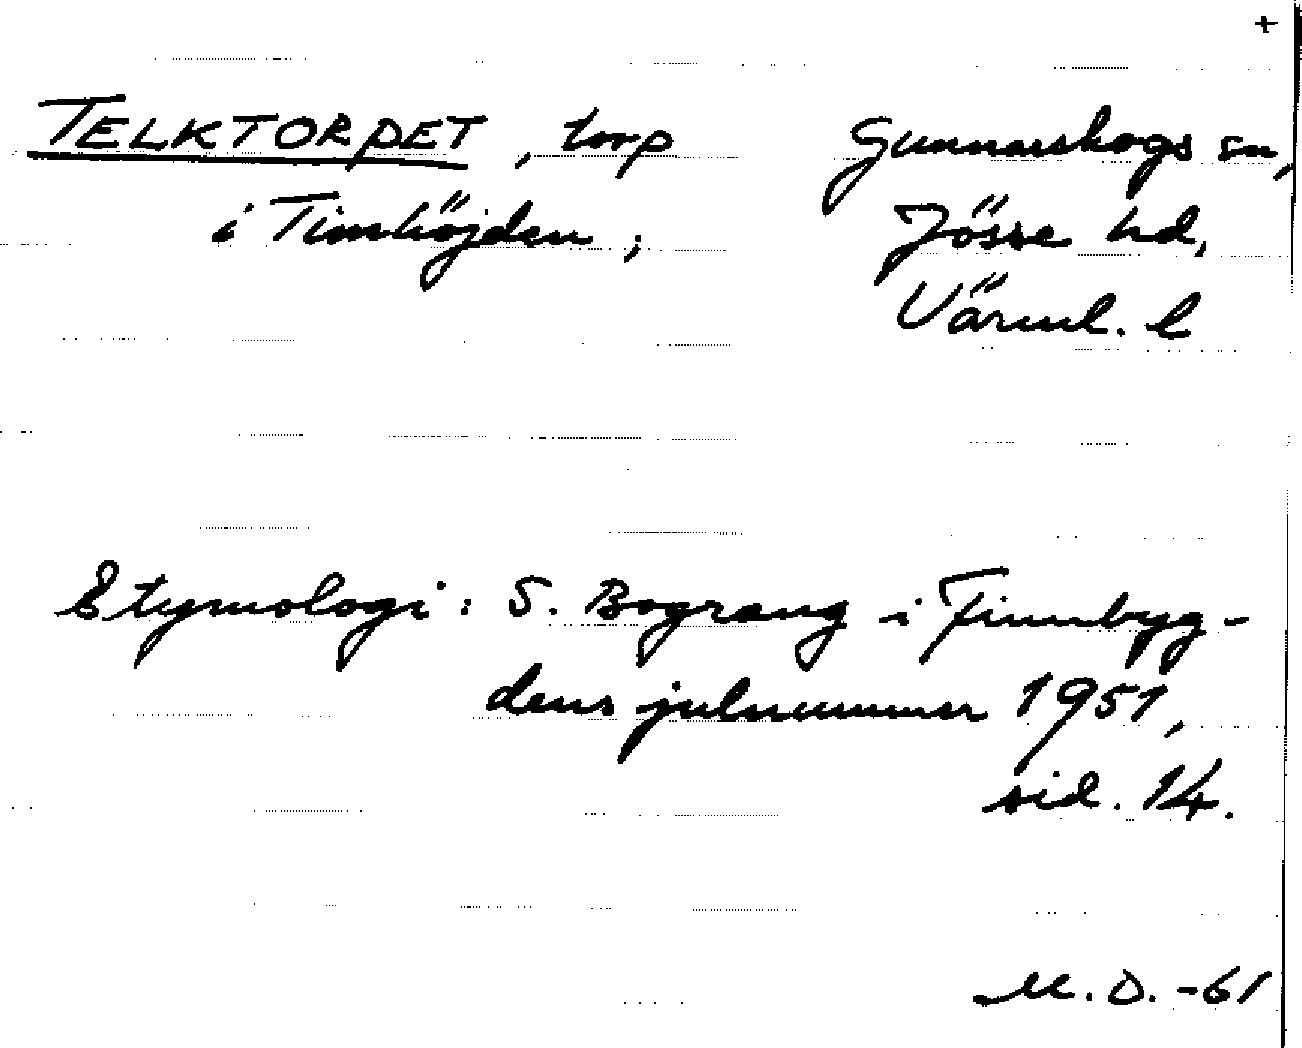 +
TELKTORPET, torp
i Timhöjden;
Gunnarskogs sn,
Jösse hd,
Värml. l
Etymologi: S. Bograng i Finnbyg-
dens julnummer 1951,
sid. 14.
M.D. -61